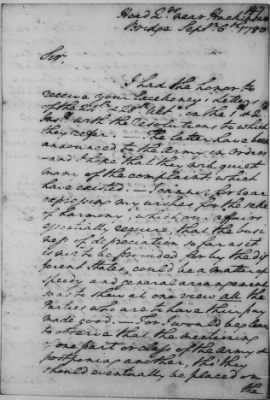 Head Qrs near Hackensac
Bridge Septr 6th 1780
Sir,
I had the honor to
receive your Excellency's Letters
of the 24th & 28th Ulto, on the 1 & 2
Inst with the Resolutions to which
they refer. — The latter have been
announced to the Army in Orders
and I hope that they will quiet
many of the complaints which
have existed. — I cannot forbear
expressing my wishes for the sake
of harmony, which our affairs
essentially require, that the busi
ness of depreciation so far as it
is to be provided for by the dif
ferent States, could be a matter of
speedy and general arrangement
so as to shew at one view all the
Parties who are to have their pay
made good. — For I would beg leave
to observe that the mentioning
of one part or class of the Army &
postponing another, tho they
should eventually be placed on
the